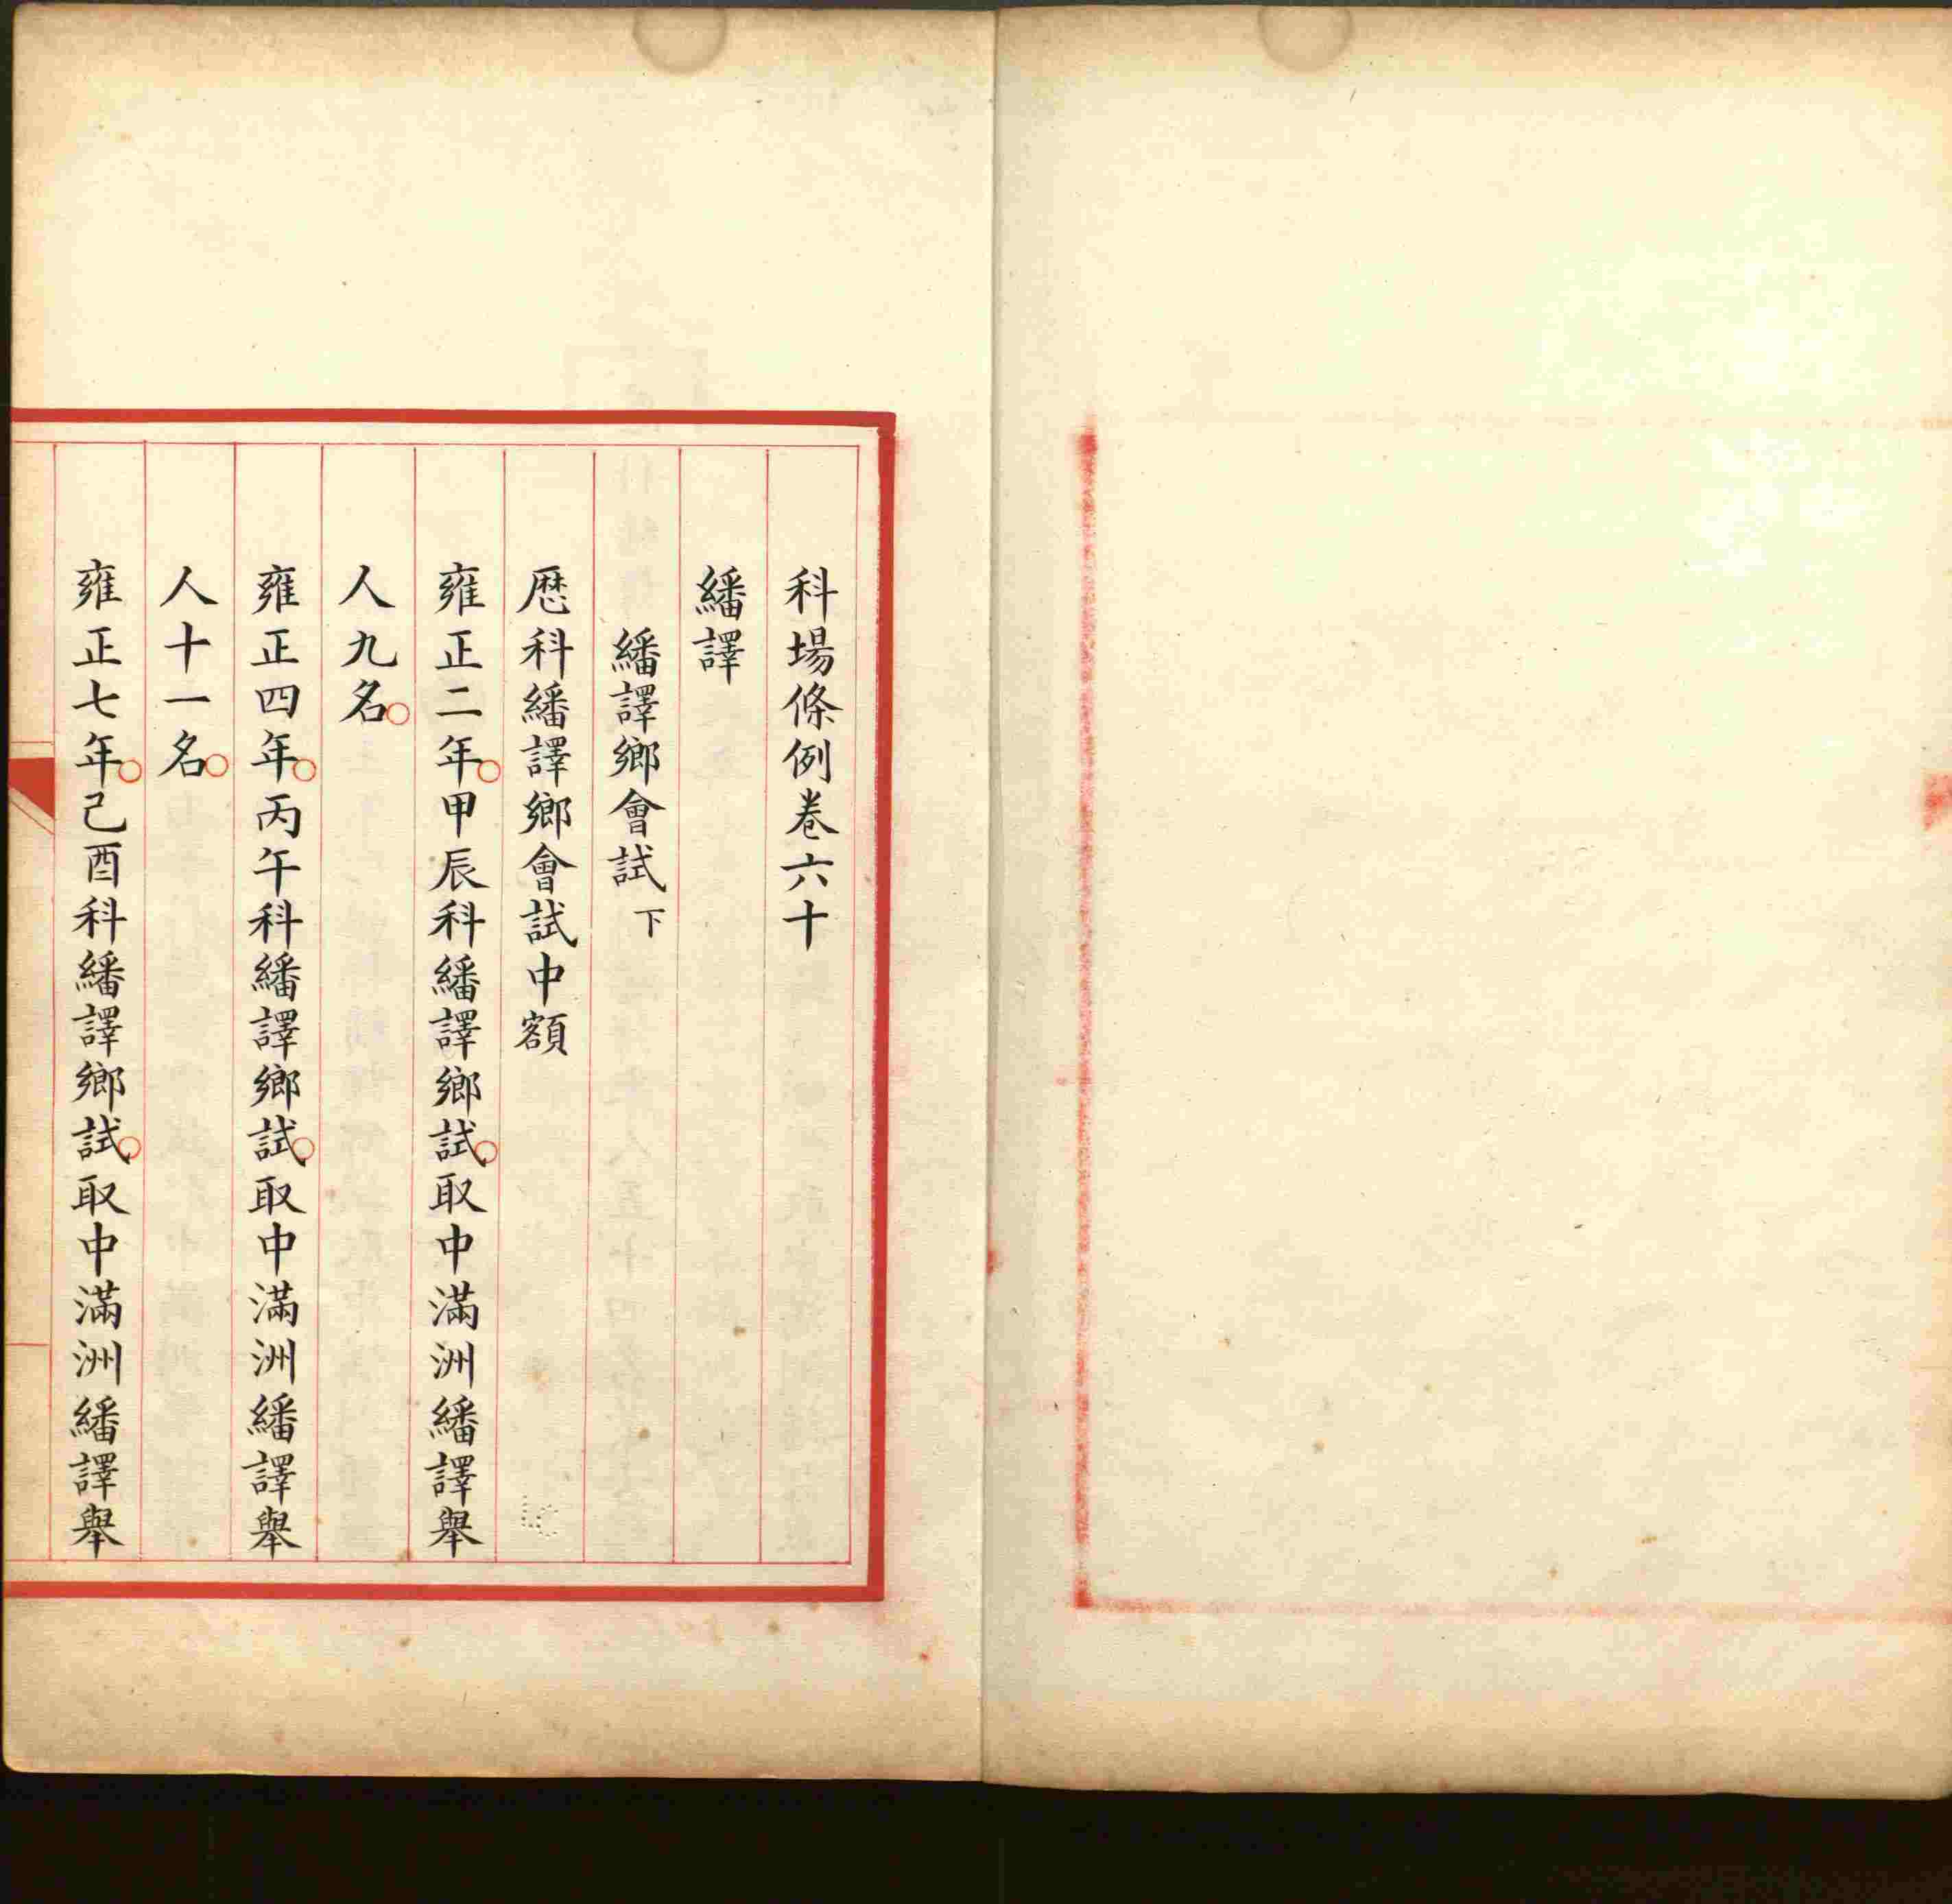 科場條例卷六十
繙譯
繙譯鄉會試下
歷科繙譯鄉會試中額
雍正二年○甲辰科繙譯鄉試○取中滿洲繙譯舉
人九名○
雍正四年○丙午科繙譯鄉試○取中滿洲繙譯舉
人十一名○
雍正七年○己酉科繙譯鄉試○取中滿洲繙譯舉